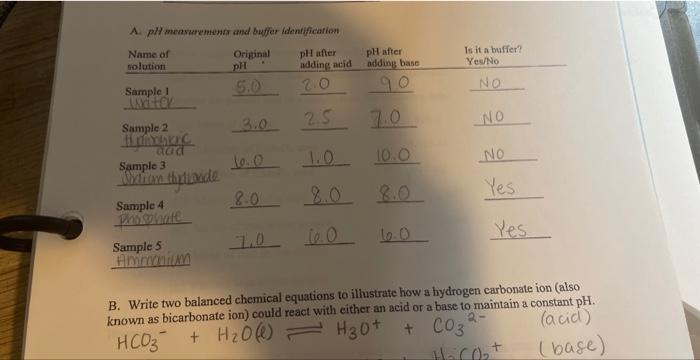 A. pH measurements and buffer identification
Name of solution Original pH pH after adding acid pH after adding base Is it a buffer? Yes/No
Sample 1 5.0 2.0 9.0 NO
Water
Sample 2 3.0 2.5 7.0 NO
acid
Sample 3 6.0 1.0 10.0 NO
Sodium Hydroxide
Sample 4 8.0 8.0 8.0 Yes
Phosphate
Sample 5 7.0 6.0 6.0 Yes
Ammonium
B. Write two balanced chemical equations to illustrate how a hydrogen carbonate ion (also
known as bicarbonate ion) could react with either an acid or a base to maintain a constant pH.
HCO₃⁻ + H₂O(l) ⇌ H₃O⁺ + CO₃²⁻ (acid)
(base)